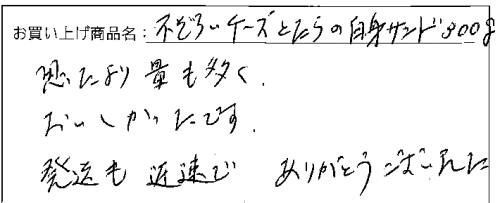 お買い上げ商品名：不ぞろいチーズとたらの白身サンド300g
思たより量も多く.
おいしかったです.
発送も迅速で ありがとうございました